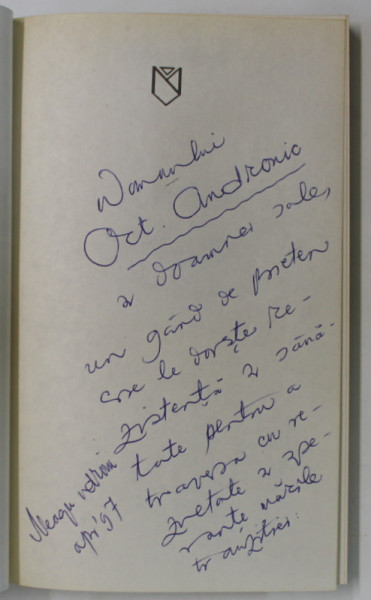 Domnului
Oct. Andronic
și doamnei sale,
un gând de prieten
care le dorește re-
zistență și sănă-
tate pentru a
traversa cu re-
zultate și spe-
rante mările
tranziției.
Neagu
apr '97